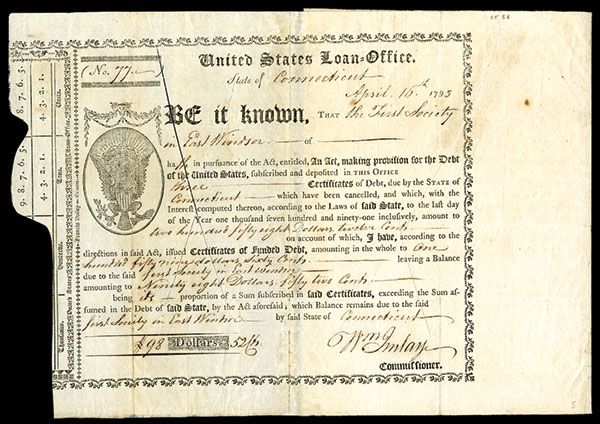 CT. 56
United States Loan-Office.
(No. 77.)
State of Connecticut
April 16th 1793
BE it known, THAT the First Society
in East Windsor of
hath in pursuance of the Act, entitled, An Act, making provision for the Debt
of the United States, subscribed and deposited IN THIS OFFICE
three Certificates of Debt, due by the STATE OF
Connecticut which have been cancelled, and which, with the
Interest computed thereon, according to the Laws of said State, to the last day
of the Year one thousand seven hundred and ninety-one inclusively, amount to
two hundred fifty eight Dollars twelve Cents
on account of which, I have, according to the
directions in said Act, issued Certificates of Funded Debt, amounting in the whole to One
hundred fifty nine dollars Sixty Cents leaving a Balance
due to the said first Society in East Windsor
amounting to Ninety eight Dollars fifty two Cents
being its proportion of a Sum subscribed in said Certificates, exceeding the Sum as-
sumed in the Debt of said State, by the Act aforesaid; which Balance remains due to the said
first Society in East Windsor by said State of Connecticut
$98 Dollars. 52/
Wm Imlay
Commissioner.
9. 8. 7. 6. 5.
4. 3. 2. 1.
Units.
9. 8. 7. 6. 5.
4. 3. 2. 1.
Tens.
Hundreds.
Thousands.
5